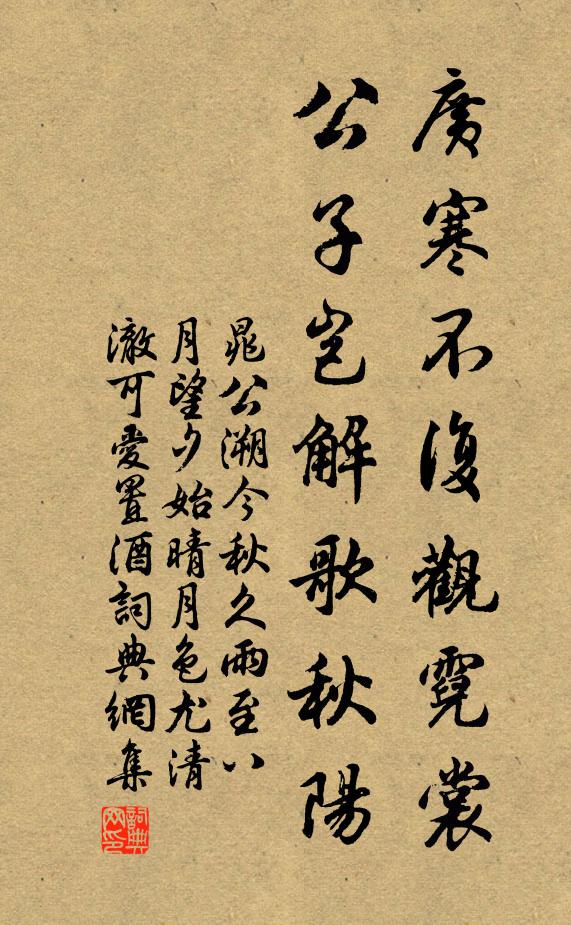 廣寒不復觀霓裳
公子豈解歌秋陽
晁公溯今秋久雨至八
月望夕始晴月色尤清
澈可愛置酒詞典網集
詞典
网印